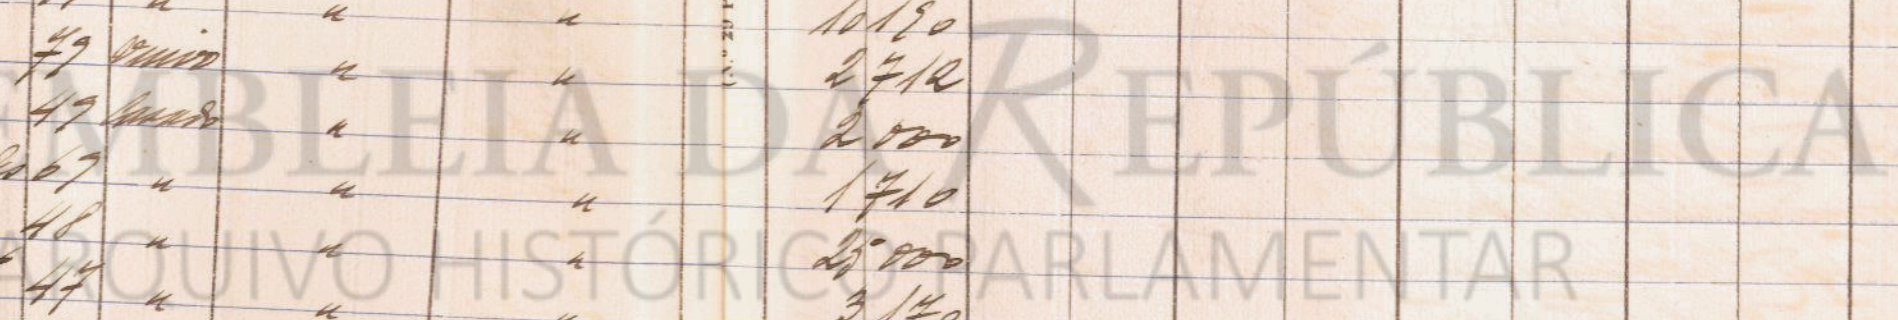 " " " 10190
79 Viuvo " " 2712
49 Casado " " 2000
69 " " " 1710
48 " " " 25000
47 " " " 3170
EMBLEIA DA REPÚBLICA
ARQUIVO HISTÓRICO PARLAMENTAR